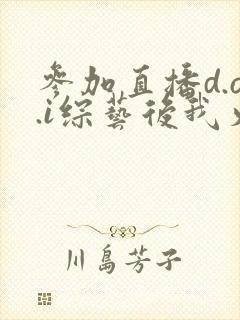 參加直播d.o
.i綜藝後我火
川島芳子